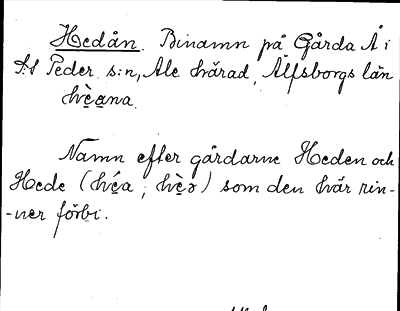 Hedån. Binamn på Gårda Å i
S:t Peder s:n, Ale härad, Älfsborgs län
hè̱a̱na.
Namn efter gårdarne Heden och
Hede (hé̱a, hè̱ə) som den här rin-
-ner förbi.